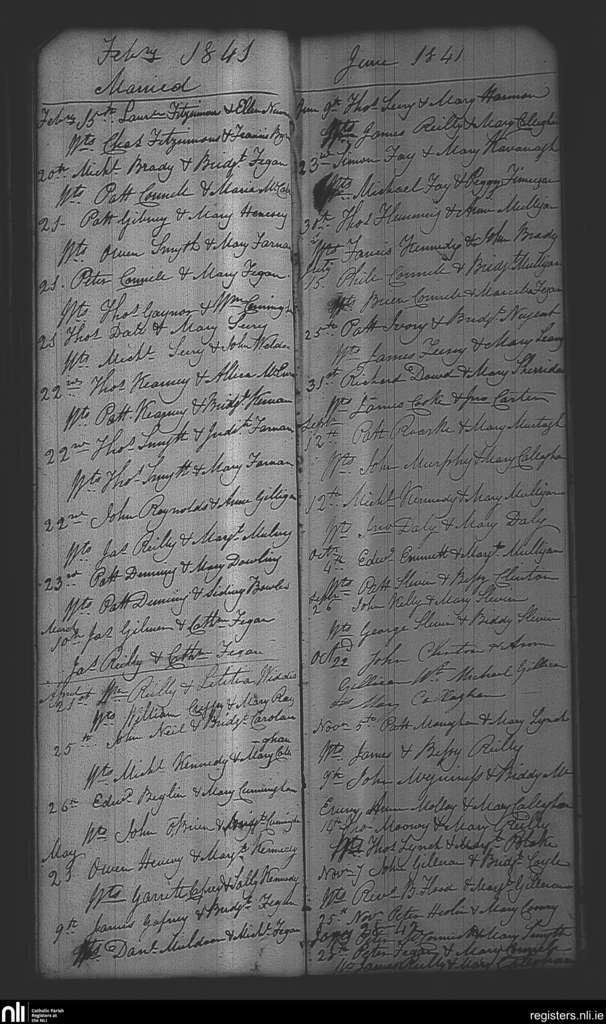 Feby 1841
Married
Feby 15th Laurce Fitzsimon & Ellen
Wts Chas Fitzsimons & Francis
20th Michl Brady & Bridgt Fegan
Wts Patt Connele & Maria McCabe
21 Patt Gibney & Mary Henesey
Wts Owen Smyth & Mary Farnan
21 Peter Connele & Mary Fegan
Wts Thos Gaynor & Wm
21 Thos Daly & Mary Seery
Wts Michl Seery & John Weldon
22nd Thos Kearney & Alicia
Wts Patt Kearney & Bridgt Kernan
22nd Thos Smyth & Judith Farnan
Wts Thos Smyth & Mary Farnan
22nd John Reynolds & Anne Gilligan
Wts Jas Reilly & Margt
23rd Patt Denning & Mary Dowling
Wts Patt Denning &
March
10th Jas Gilmen & Cathn Fegan
Jas Reilly & Cathn Fegan
April
21st Wm Reilly & Letitia Widdis
Wts William & Mary Ray
25th John Neil & Bridgt Carolan
Wts Michl Kennedy & Mary Calla
ghan
26th Edwd Beglin & Mary Cunningham
Wts John O'Brien & Bridgt
May
23 Owen Heeney & Margt Kennedy
Wts Garrett & Sally Kennedy
9th James Gafney & Bridgt Fegan
Wts Danl Muldoon & Michl Fegan
June 1841
June 9th Thos Seery & Mary Harmon
Wts James Reilly & Mary
23rd Simon Fay & Mary Kavanagh
Wts Michael Fay & Peggy
30th Thos Flemming & Anne Mulligan
Wts Francis Kennedy & John Brady
July
15 Phill Connele & Bridgt Mulligan
Wts Brien Connele & Marcella Fegan
25th Patt Ivory & Bridgt Nugent
Wts James & Mary
31st Richard Dowd & Mary Sheridan
Wts James Coke & Jno Carter
Septr
12th Patt Rourke & Mary Murtagh
Wts John Murphy & Mary Callaghan
12th Michl Kennedy & Mary Muligan
Wts Jno Daly & Mary Daly
Octr
4th Edwd Emmett & Margt Mulligan
Wts Patt Slevin & Bessy Clinton
Septr
26 John Kelly & Mary Slevin
Wts George Slevin & Biddy Slevin
Octr 22nd John Clinton & Ann
Gilleen Wts Michael Gilleen
& Mary Callaghan
Novr 5th Patt Monaghan & Mary Lynch
Wts James & Bessy Reilly
9th John & Biddy Mc
Molloy & Mary Callaghan
15 Jno Mooney & Mary Reilly
Wts Thos Lynch & Margt Blake
Novr 7 John Gilleran & Bridgt Coyle
Wts Revd B Flood & Margt Gilleran
25th Novr Peter & Mary
& Mary Smyth
Peter Fegan & Mary Connele
Wts James Reilly & Mary Callaghan
nli
Catholic Parish
Registers at
the NLI
registers.nli.ie